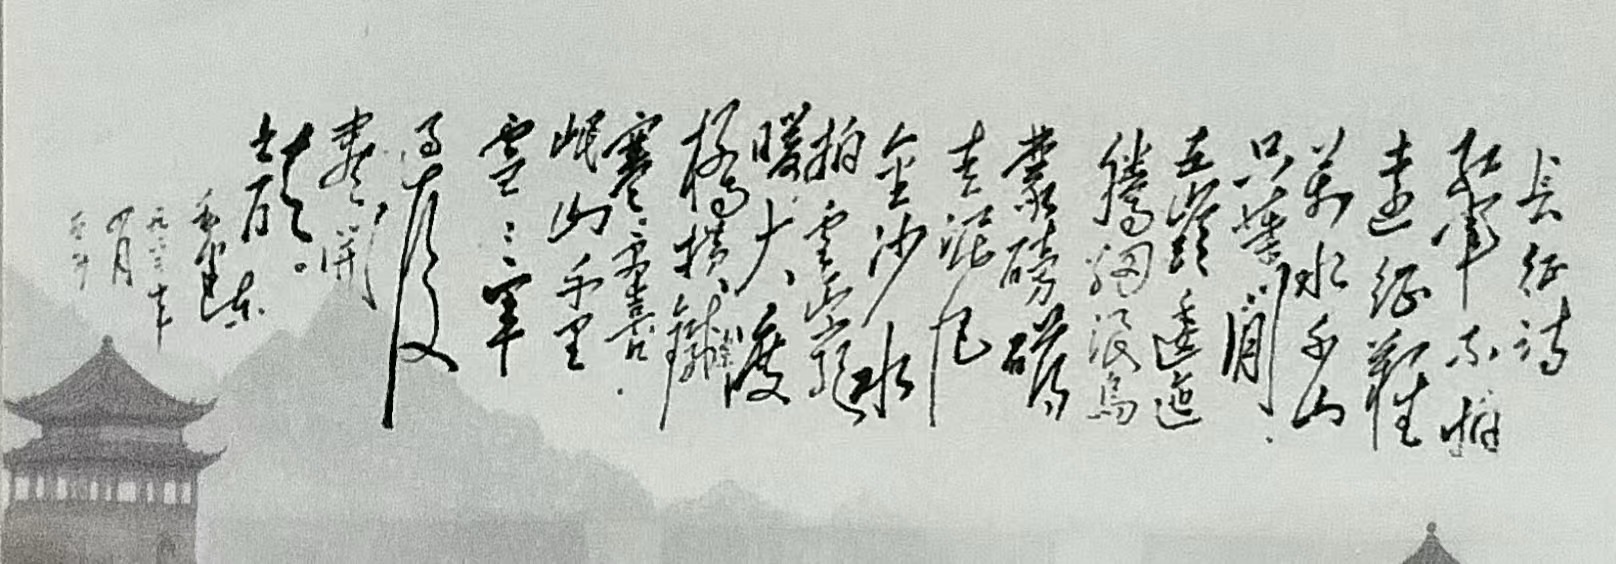 長征詩
紅軍不怕
遠征難
萬水千山
只等閒
五嶺逶迤
騰細浪烏
蒙磅礴
走泥丸
金沙水
拍雲崖
暖大渡
橋橫鐵索
寒更喜
岷山千里
雪三軍
過後
盡開
顏。
毛澤東
一九六二年
四月